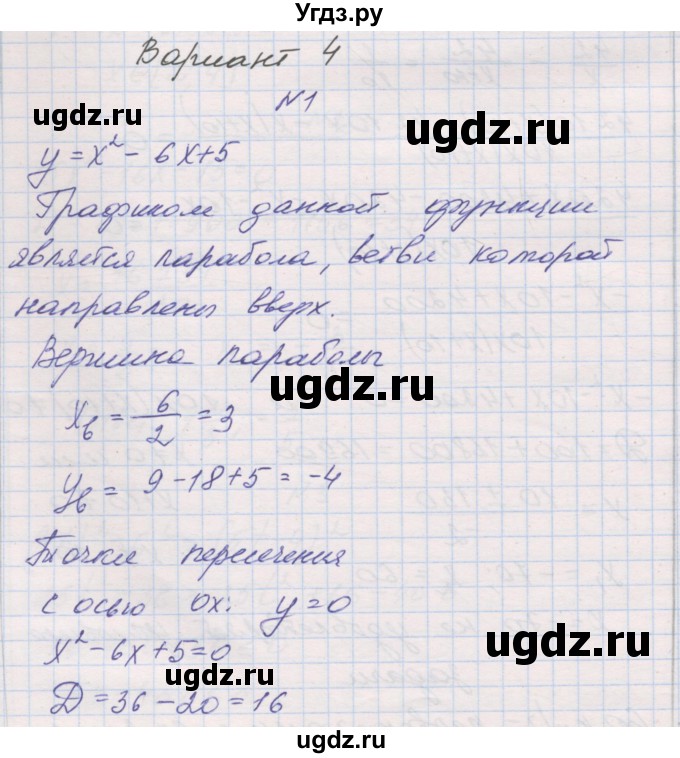 Угдз.ру
Вариант 4
ugdz.ru
N1
ugdz.ru
y = x² - 6x + 5
Графиком данной функции
является парабола, ветви которой
направлены вверх.
Вершина параболы
ugdz.ru
xв = 6/2 = 3
ugdz.ru
yв = 9 - 18 + 5 = -4
Точки пересечения
с осью ox: y = 0
ugdz.ru
x² - 6x + 5 = 0
ugdz.ru
D = 36 - 20 = 16
ugdz.ru